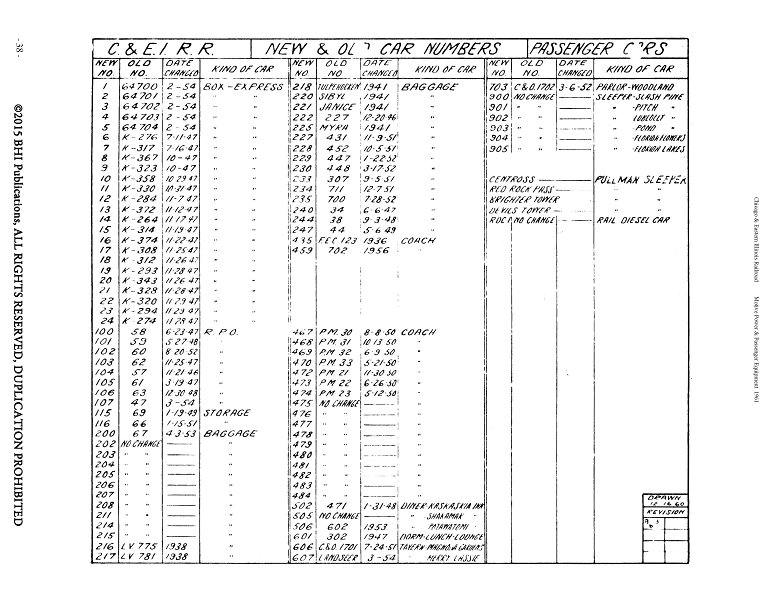 - 38 -
©2015 BHI Publications, ALL RIGHTS RESERVED, DUPLICATION PROHIBITED
C. & E. I. R. R. NEW & OLD CAR NUMBERS PASSENGER CARS
NEW NO. OLD NO. DATE CHANGED KIND OF CAR
1 64700 2-54 BOX-EXPRESS
2 64701 2-54 "
3 64702 2-54 "
4 64703 2-54 "
5 64704 2-54 "
6 K-276 7-11-47 "
7 K-317 7-16-47 "
8 K-367 10-47 "
9 K-323 10-47 "
10 K-358 10 29 47 "
11 K-330 10-31-47 "
12 K-284 11-7-47 "
13 K-372 11-12-47 "
14 K-264 11 17 47 "
15 K-314 11-19-47 "
16 K-374 11-22-47 "
17 K-308 11-25-47 "
18 K-312 11-26-47 "
19 K-293 11-28-47 "
20 K-343 11 26 47 "
21 K-328 11-28-47 "
22 K-320 11 29 47 "
23 K-294 11 29 47 "
24 K 274 11 28 47 "
100 58 6-23-47 R. P. O.
101 59 5 27 48 "
102 60 8 20 52 "
103 62 11-25-47 "
104 57 11-21-46 "
105 61 3 19 47 "
106 63 12 30 48 "
107 47 3-54 "
115 69 1-19-49 STORAGE
116 66 1-15-51 "
200 67 4-3-53 BAGGAGE
202 NO CHANGE "
203 " " "
204 " " "
205 " " "
206 " " "
207 " " "
208 " " "
211 " " "
214 " " "
215 " " "
216 LV 775 1938 "
217 LV 781 1938 "
NEW NO. OLD NO. DATE CHANGED KIND OF CAR
218 TULPEHOCKEN 1941 BAGGAGE
220 SIBYL 1941 "
221 JANICE 1941 "
222 227 12-20-46 "
225 MYRA 1941 "
227 431 11-9-51 "
228 452 10-5-51 "
229 447 1-22-52 "
230 448 3-17-52 "
233 307 9-5-51 "
234 711 12-7-51 "
235 700 7-28-52 "
240 34 6-6-47 "
244 38 9-3-48 "
247 44 5-6-49 "
435 F.E.C 123 1936 COACH
459 702 1956 "
467 P.M. 30 8-8-50 COACH
468 P.M. 31 10 13 50 "
469 P.M 32 6-9 50 "
470 P.M. 33 5-21-50 "
472 P.M 21 11-30-50 "
473 P.M 22 6-26-50 "
474 P.M 23 5-12-50 "
475 NO CHANGE "
476 " " "
477 " " "
478 " " "
479 " " "
480 " " "
481 " " "
482 " " "
483 " " "
484 " " "
502 471 1-31-48 DINER KASKASKIA INN
505 NO CHANGE " SHAKAMAK "
506 602 1953 " PATAWATOMI "
601 302 1947 DORM-LUNCH-LOUNGE
606 C.&O. 1701 7-24-51 TAVERN MAGNOLIA GARDENS
607 LANDSEER 3-54 " MERRY LASSIE
NEW NO. OLD NO. DATE CHANGED KIND OF CAR
703 C&O.1702 3-6-52 PARLOR-WOODLAND
900 NO CHANGE SLEEPER-SLASH PINE
901 " " " -PITCH "
902 " " " LONGLEAF "
903 " " " POND "
904 " " " -FLORIDA FLOWERS
905 " " " -FLORIDA LAKES
CENTROSS PULLMAN SLEEPER
RED ROCK PASS " "
BRIGHTER TOWER " "
DEVILS TOWER " "
RDC 1 NO CHANGE RAIL DIESEL CAR
DRAWN
12 16 60
REVISION
Chicago & Eastern Illinois Railroad Motive Power & Passenger Equipment 1961